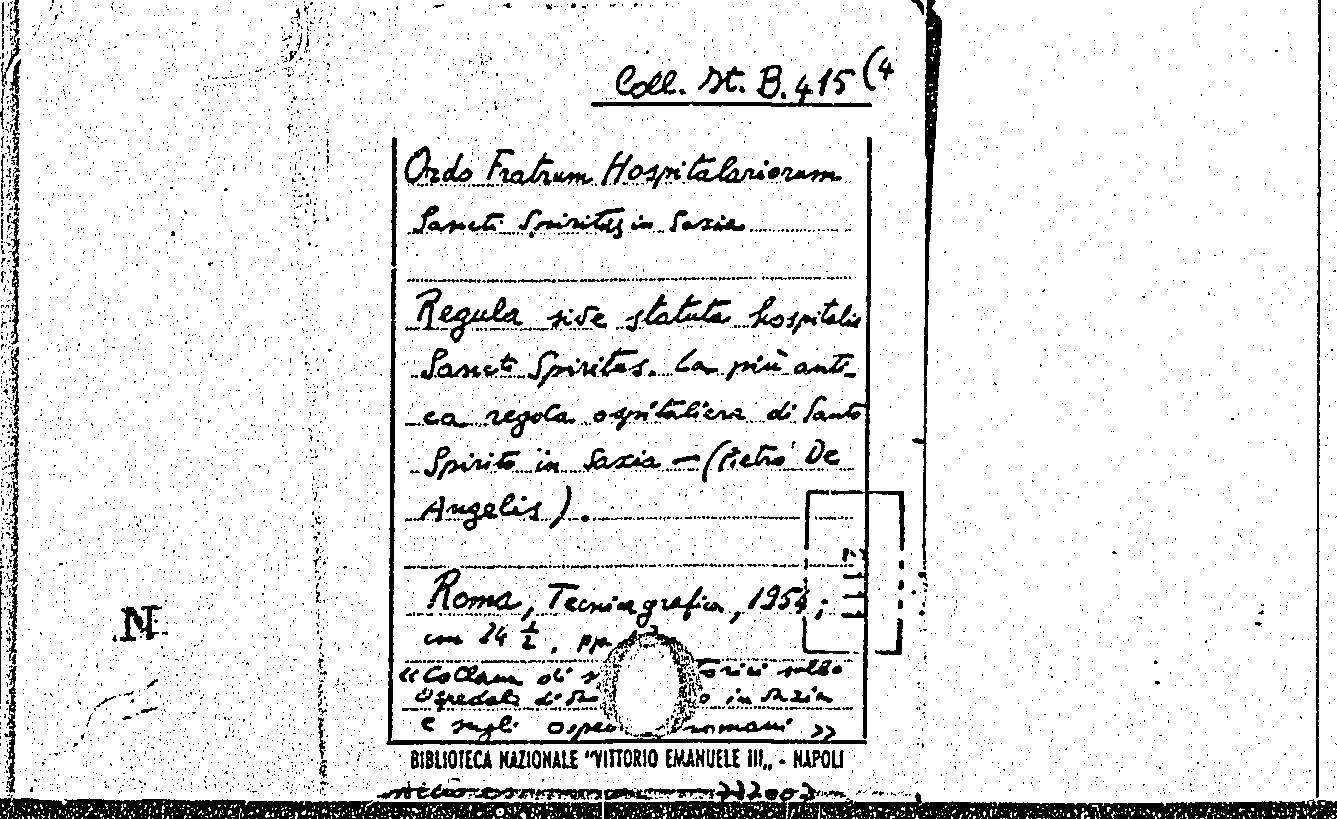 Coll. St. B. 415 (4
Ordo Fratrum Hospitalariorum
Sancti Spiritus in Saxia
Regula sive statuta hospitalis
Sancti Spiritus. La più anti-
ca regola ospitaliera di Santo
Spirito in Saxia — (Pietro De
Angelis).
Roma, Tecnica grafica, 1954;
cm 24 ½, pp.
«Collana di sto­rici sullo
Ospedale di in Saxia
e sugli romani »
BIBLIOTECA NAZIONALE "VITTORIO EMANUELE III„ - NAPOLI
N